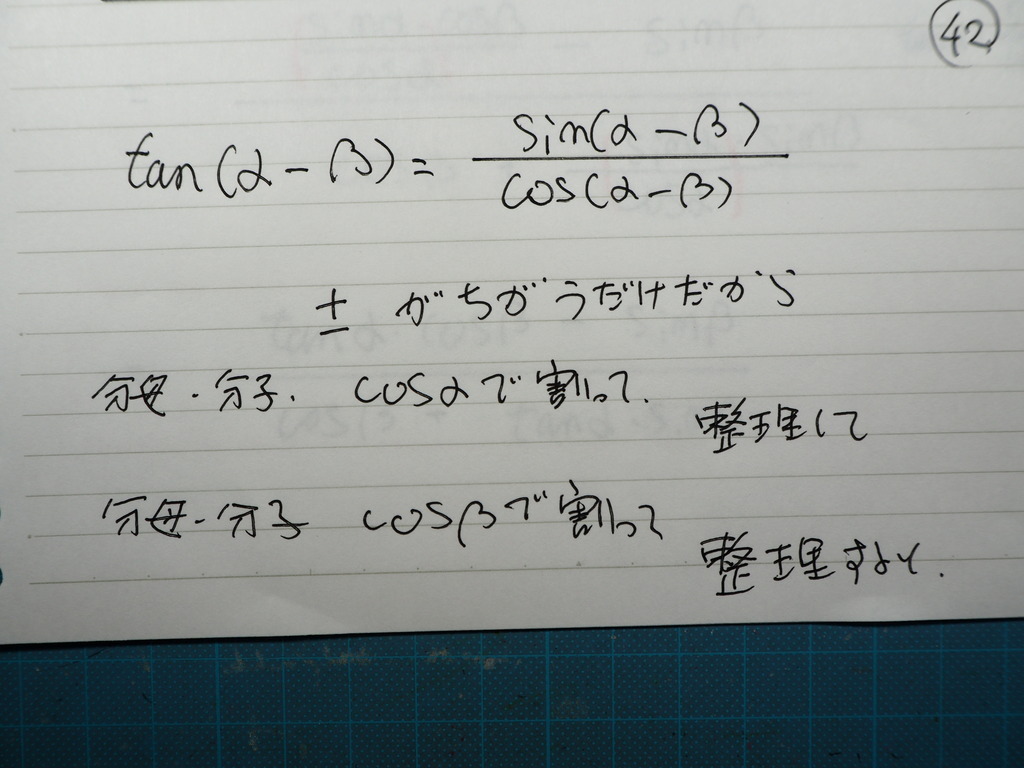 42
tan(α-β)= sin(α-β)
cos(α-β)
± がちがうだけだから
分母・分子. cosαで割って.
整理して
分母・分子 cosβで割って
整理すると.